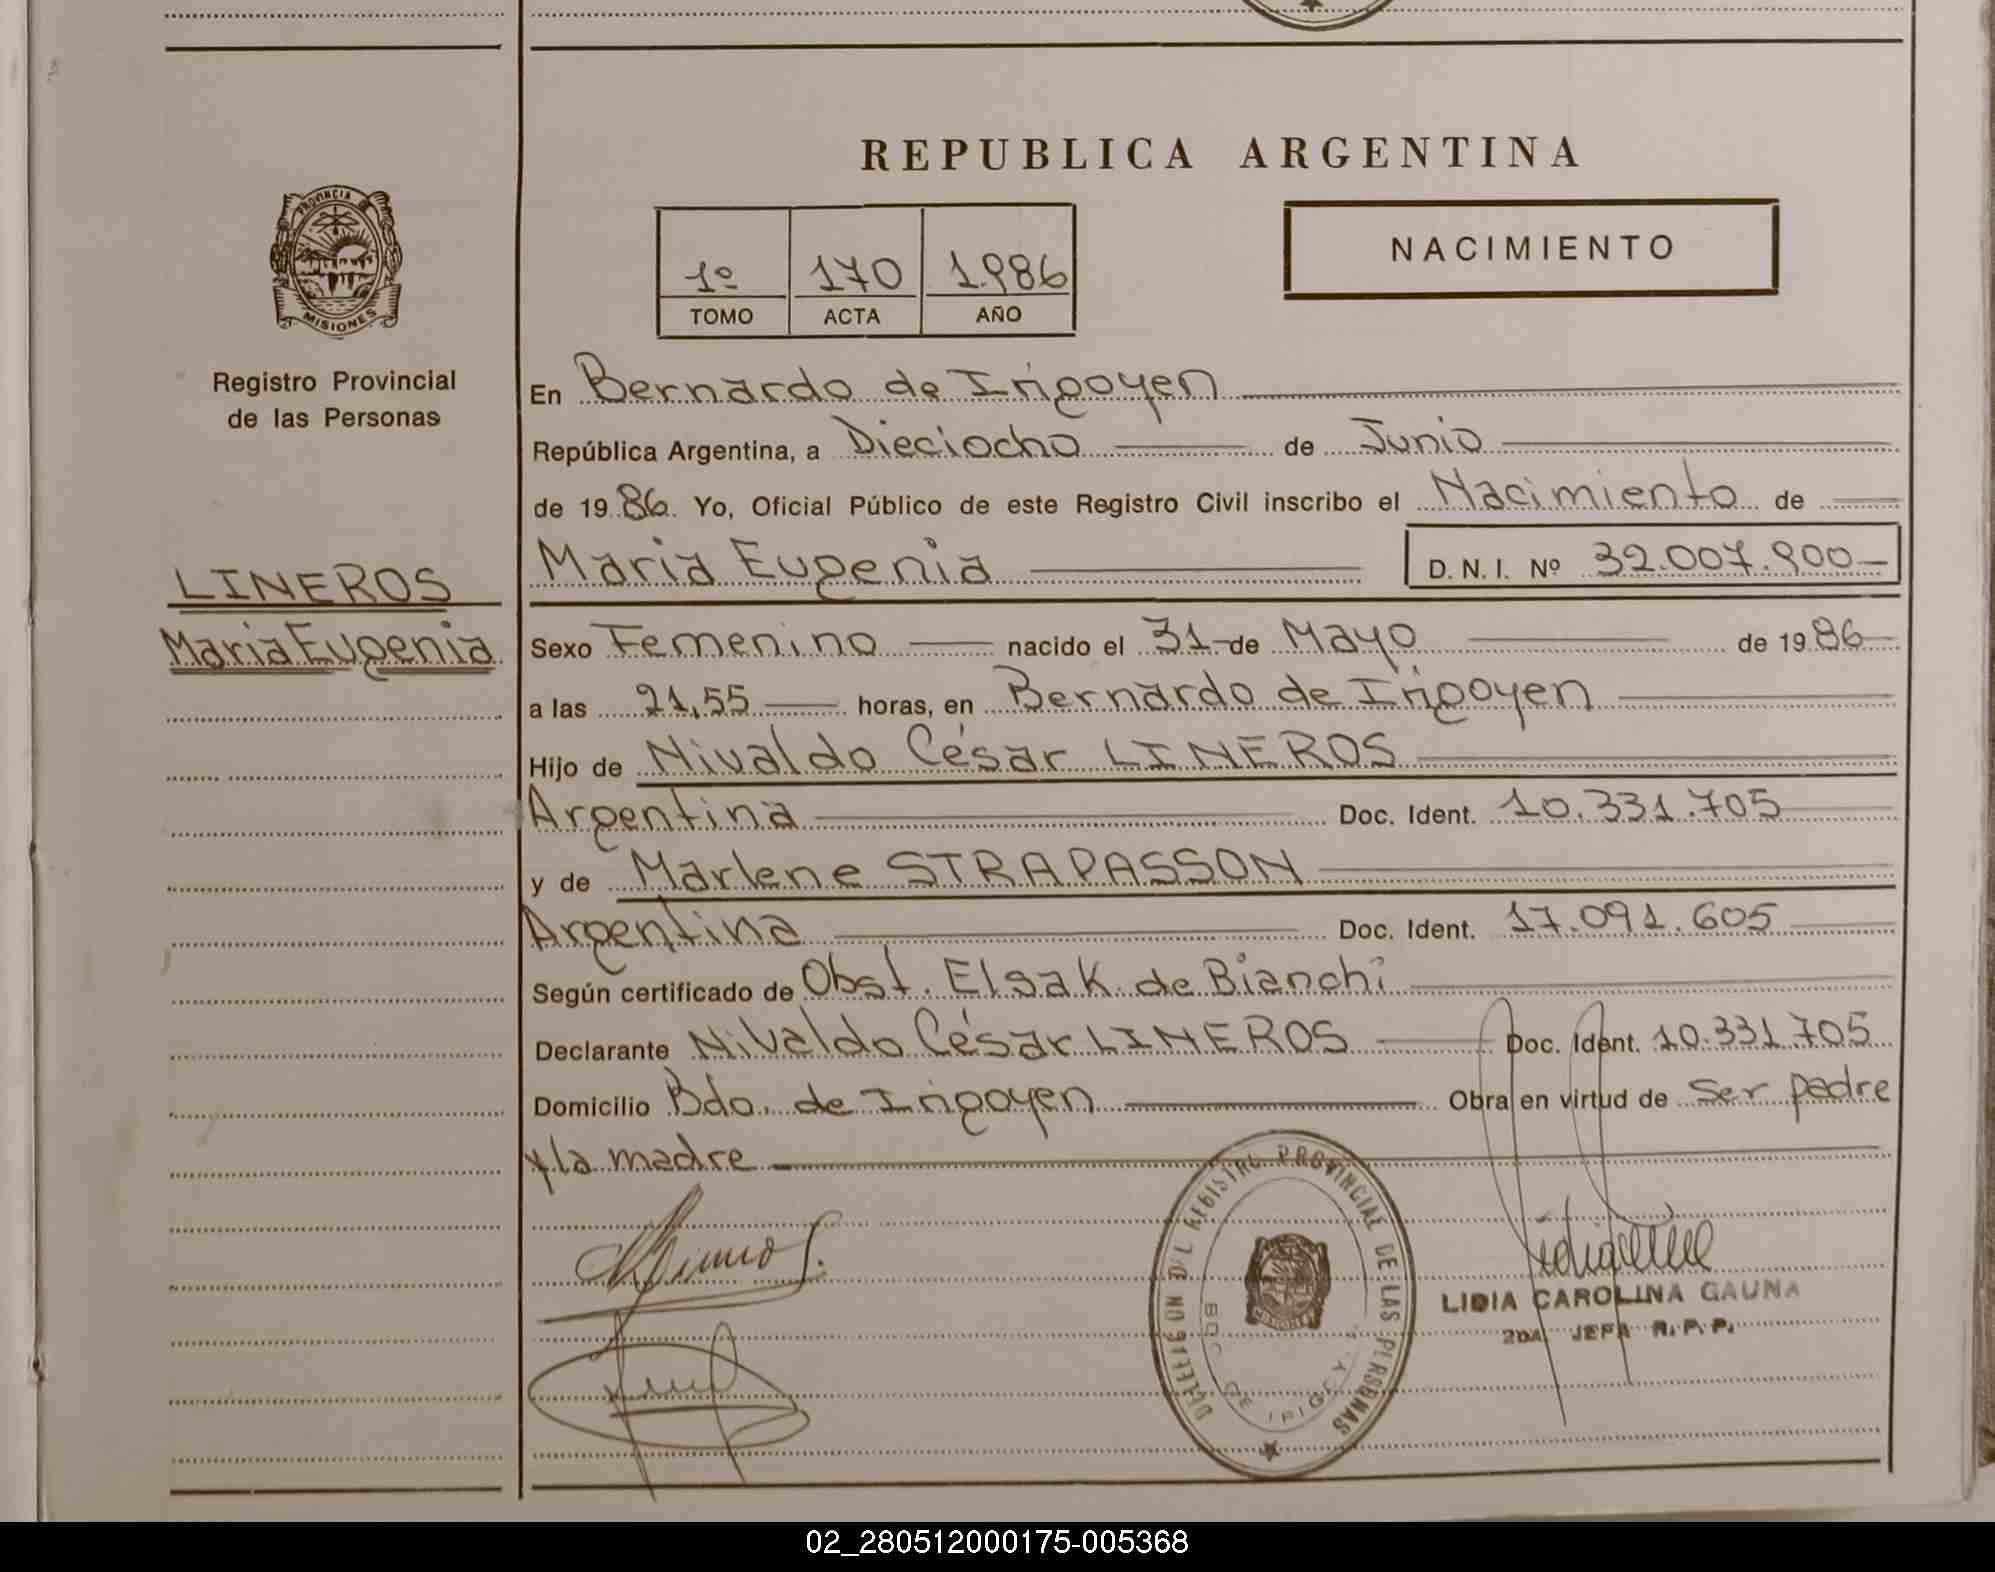 REPUBLICA ARGENTINA
PROVINCIA
MISIONES
Registro Provincial
de las Personas
1º 170 1.986
TOMO ACTA AÑO
NACIMIENTO
En Bernardo de Irigoyen
República Argentina, a Dieciocho de Junio
de 1986. Yo, Oficial Público de este Registro Civil inscribo el Nacimiento de
LINEROS
Maria Eugenia
Maria Eugenia D. N. I. Nº 32.007.900-
Sexo Femenino nacido el 31-de Mayo de 1986
a las 21,55 horas, en Bernardo de Irigoyen
Hijo de Nivaldo César LINEROS
Argentina Doc. Ident. 10.331.705
y de Marlene STRAPASSON
Argentina Doc. Ident. 17.091.605
Según certificado de Obst. Elsa K de Bianchi
Declarante Nivaldo César LINEROS Doc. Ident. 10.331.705
Domicilio Bdo. de Irigoyen Obra en virtud de ser padre
y la madre
DELEGACION DEL REGISTRO PROVINCIAL DE LAS PERSONAS
BDO. DE IRIGOYEN
LIDIA CAROLINA GAUNA
2DA. JEFA R.P.P.
02_280512000175-005368